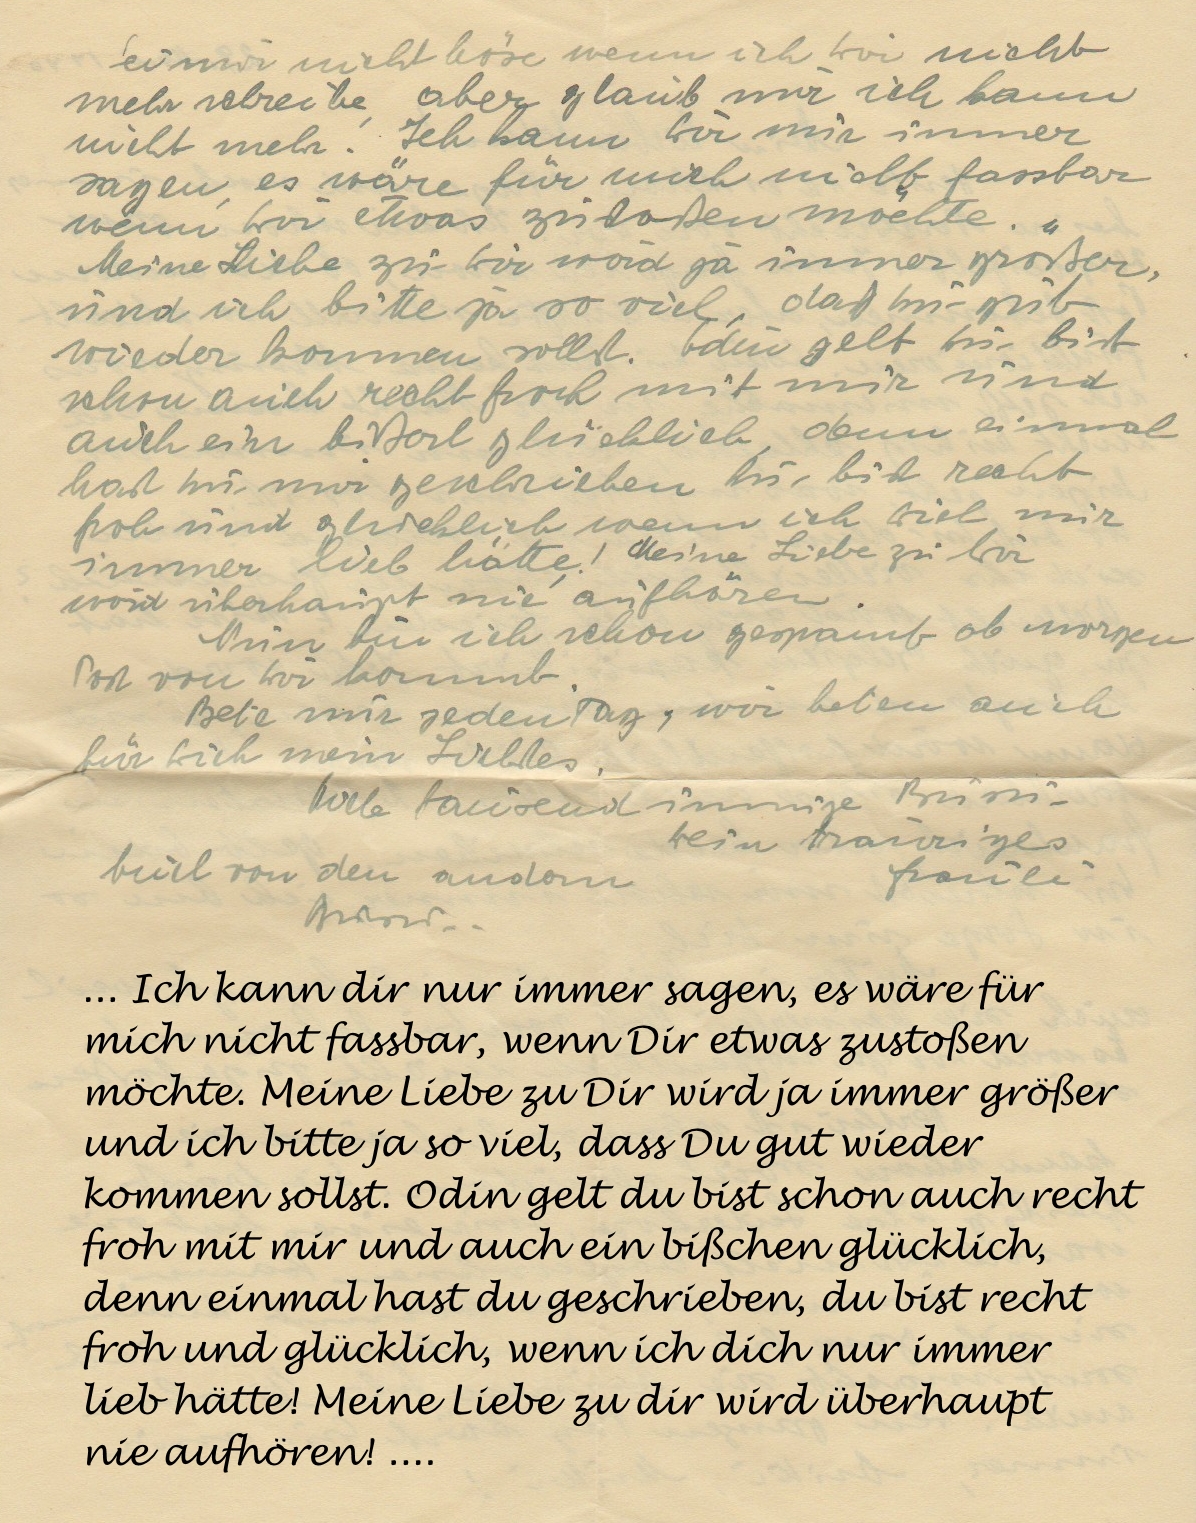 sei mir nicht böse wenn ich dir nicht
mehr schreibe, aber glaub mir ich kann
nicht mehr! Ich kann dir nur immer
sagen, es wäre für mich nicht fassbar
wenn dir etwas zustoßen möchte.
Meine Liebe zu dir wird ja immer größer,
und ich bitte ja so viel, daß du gut
wieder kommen sollst. Odin gelt du bist
schon auch recht froh mit mir und
auch ein bißerl glücklich, denn einmal
hast du mir geschrieben du bist recht
froh und glücklich wenn ich dich nur
immer lieb hätte! Meine Liebe zu dir
wird überhaupt nie aufhören.
Nun bin ich schon gespannt ob morgen
Post von dir kommt.
Bete nur jeden Tag, wir beten auch
für dich mein Liebstes.
Viele tausend innige Bussi
dein trauriges
buil von den andern Frauli
Bussi..
... Ich kann dir nur immer sagen, es wäre für
mich nicht fassbar, wenn Dir etwas zustoßen
möchte. Meine Liebe zu Dir wird ja immer größer
und ich bitte ja so viel, dass Du gut wieder
kommen sollst. Odin gelt du bist schon auch recht
froh mit mir und auch ein bißchen glücklich,
denn einmal hast du geschrieben, du bist recht
froh und glücklich, wenn ich dich nur immer
lieb hätte! Meine Liebe zu dir wird überhaupt
nie aufhören! ....